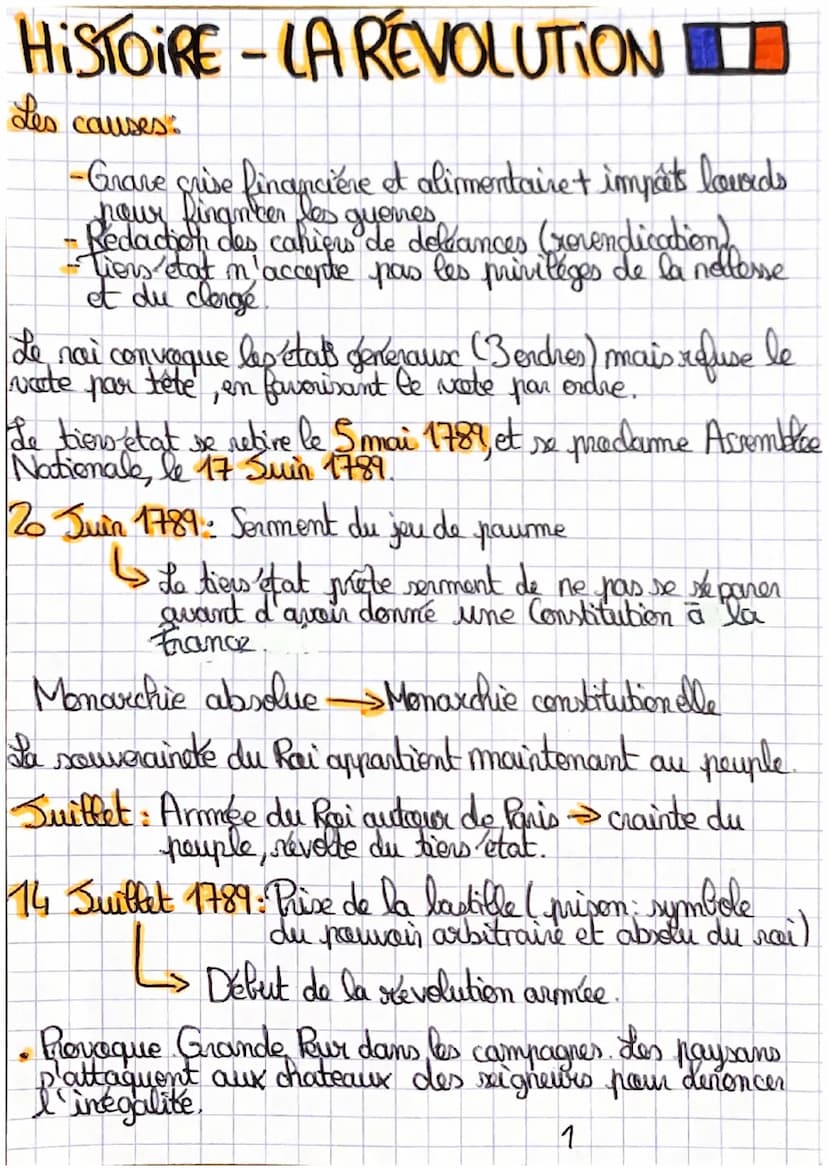 HISTOIRE - LA RÉVOLUTION
Les causes:
- Grave crise financière et alimentaire + impôts lourds
pour financer les guerres
- Rédaction des cahiers de doléances (revendication)
- Tiers état n'accepte pas les privilèges de la noblesse
et du clergé.
Le roi convoque les états généraux (3 ordres) mais refuse le
vote par tête, en favorisant le vote par ordre.
Le tiers état se retire le 5 mai 1789, et se proclame Assemblée
Nationale, le 17 Juin 1789.
20 Juin 1789: Serment du jeu de paume
↳ Le tiers état prête serment de ne pas se séparer
avant d'avoir donné une Constitution à la
France.
Monarchie absolue → Monarchie constitutionelle
La souveraineté du Roi appartient maintenant au peuple.
Juillet : Armée du Roi autour de Paris → crainte du
peuple, révolte du tiers état.
14 Juillet 1789: Prise de la bastille (prison: symbole
du pouvoir arbitraire et absolu du roi)
↳ Début de la révolution armée.
• Provoque Grande Peur dans les campagnes. Les paysans
s'attaquent aux chateaux des seigneurs pour dénoncer
l'inégalité.
1